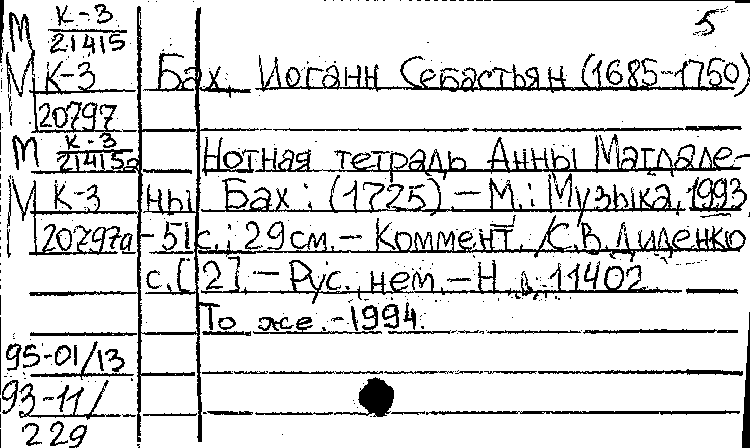 5
М К-3/21415
М К-3
20797
М К-3/21415а
М К-3
20797а
Бах, Иоганн Себастьян (1685-1750)
Нотная тетрадь Анны Магдале-
ны Бах : (1725). — М. : Музыка, 1993.
- 51с. ; 29см. — Коммент. /С.В. Диденко
с. [2]. — Рус., нем. — Н. 11402
То же. -1994.
95-01/13
93-11/
229